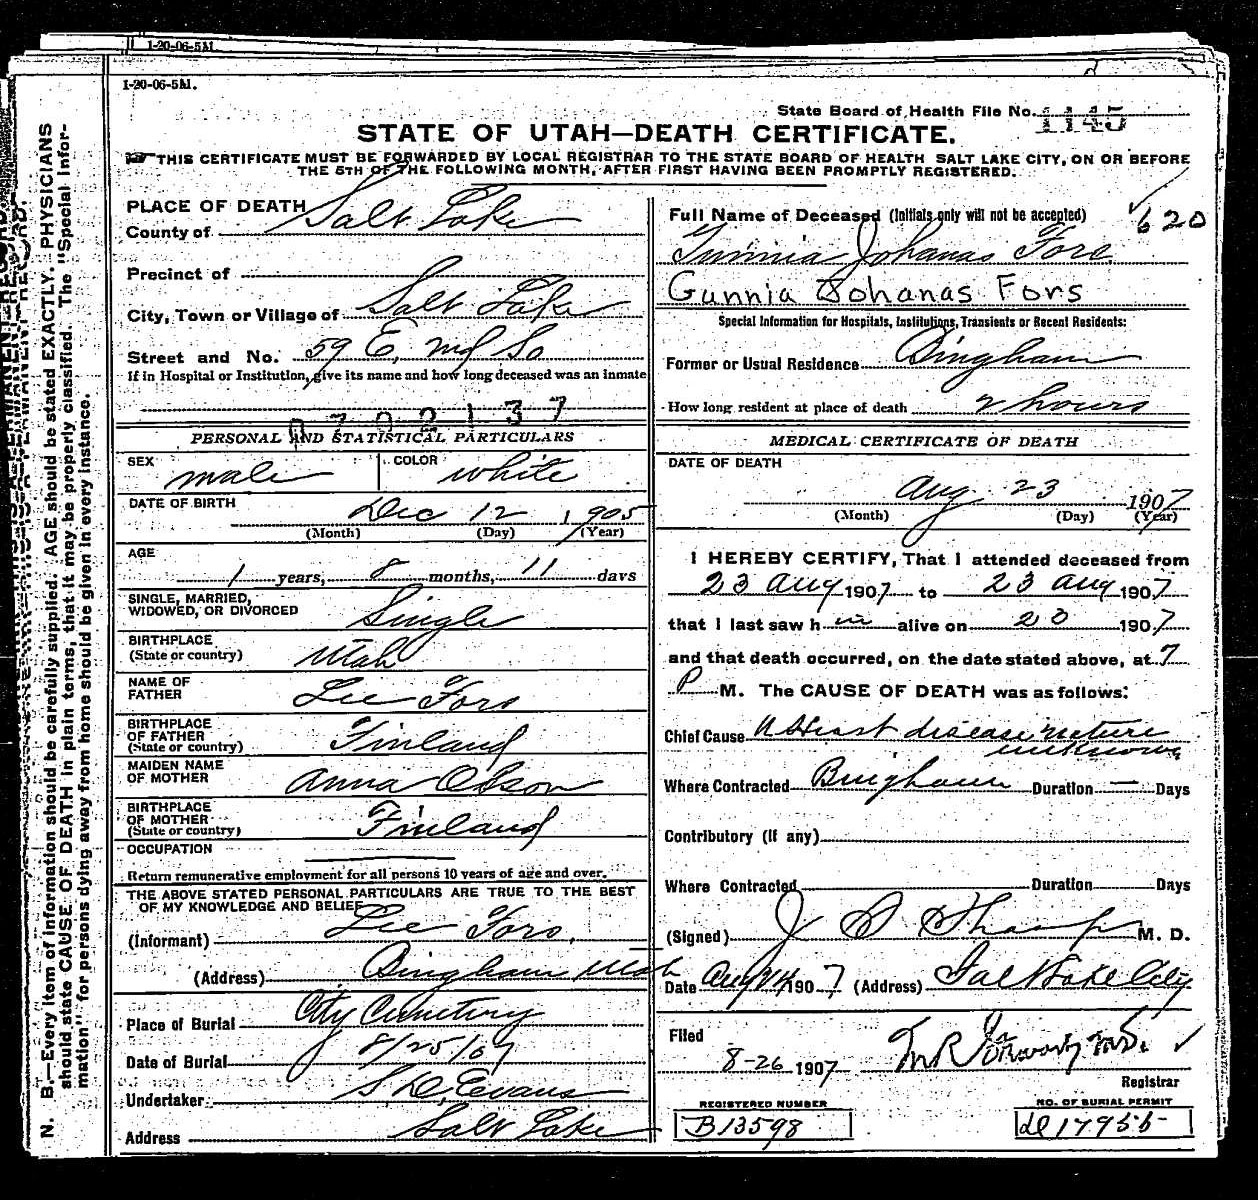 1-20-06-5M.
1-20-06-5M.
State Board of Health File No. 1145
STATE OF UTAH—DEATH CERTIFICATE.
THIS CERTIFICATE MUST BE FORWARDED BY LOCAL REGISTRAR TO THE STATE BOARD OF HEALTH SALT LAKE CITY, ON OR BEFORE
THE 5TH OF THE FOLLOWING MONTH, AFTER FIRST HAVING BEEN PROMPTLY REGISTERED.
N. B.—Every item of information should be carefully supplied. AGE should be stated EXACTLY. PHYSICIANS
should state CAUSE OF DEATH in plain terms, that it may be properly classified. The "Special Infor-
mation" for persons dying away from home should be given in every instance.
PLACE OF DEATH
County of Salt Lake
Precinct of
City, Town or Village of Salt Lake
Street and No. 59 E, So
If in Hospital or Institution, give its name and how long deceased was an inmate
0702137
PERSONAL AND STATISTICAL PARTICULARS
SEX male COLOR white
DATE OF BIRTH Dec 12 1905
(Month) (Day) (Year)
AGE
1 years, 8 months, 11 days
SINGLE, MARRIED,
WIDOWED, OR DIVORCED Single
BIRTHPLACE
(State or country) Utah
NAME OF
FATHER Lee Fors
BIRTHPLACE
OF FATHER
(State or country) Finland
MAIDEN NAME
OF MOTHER Anna Olsson
BIRTHPLACE
OF MOTHER
(State or country) Finland
OCCUPATION
Return remunerative employment for all persons 10 years of age and over.
THE ABOVE STATED PERSONAL PARTICULARS ARE TRUE TO THE BEST
OF MY KNOWLEDGE AND BELIEF
(Informant) Lee Fors.
(Address) Bingham Utah
Place of Burial City Cemetery
Date of Burial 8/25/07
Undertaker Evans
Address Salt Lake
Full Name of Deceased (Initials only will not be accepted)
620
Johanas Fors
Gunnia Johanas Fors
Special Information for Hospitals, Institutions, Transients or Recent Residents:
Former or Usual Residence Bingham
How long resident at place of death 2 hours
MEDICAL CERTIFICATE OF DEATH
DATE OF DEATH
Aug 23 1907
(Month) (Day) (Year)
I HEREBY CERTIFY, That I attended deceased from
23 Aug 1907 to 23 Aug 1907
that I last saw h im alive on 23 1907
and that death occurred, on the date stated above, at 7
P M. The CAUSE OF DEATH was as follows:
Chief Cause Heart disease nature
unknown
Where Contracted Bingham Duration — Days
Contributory (if any)
Where Contracted Duration Days
(Signed) J S Sharp M. D.
Date Aug 24 1907 (Address) Salt Lake City
Filed
8-26 1907 M.D.
Registrar
REGISTERED NUMBER
B13598
NO. OF BURIAL PERMIT
17955